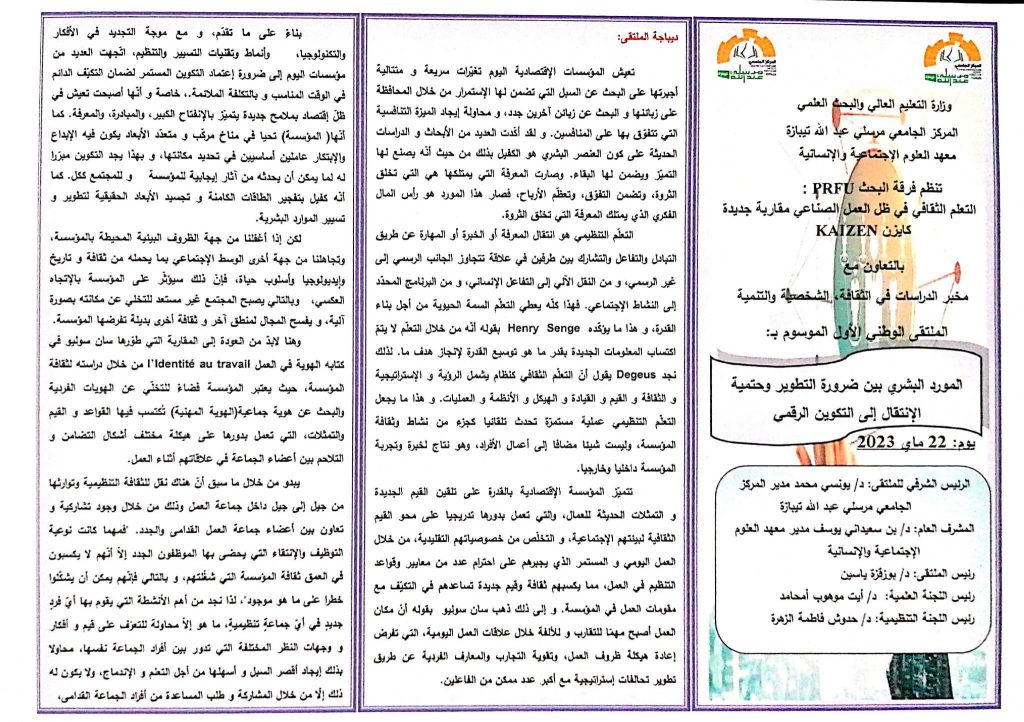 وزارة التعليم العالي والبحث العلمي
المركز الجامعي مرسلي عبد الله تيبازة
معهد العلوم الإجتماعية والإنسانية
تنظم فرقة البحث PRFU :
التعلم الثقافي في ظل العمل الصناعي مقاربة جديدة
كايزن KAIZEN
بالتعاون مع
مخبر الدراسات في الثقافة، الشخصية والتنمية
الملتقى الوطني الأول الموسوم بـ:
المورد البشري بين ضرورة التطوير وحتمية
الإنتقال إلى التكوين الرقمي
يوم: 22 ماي 2023
الرئيس الشرفي للملتقى: د/ يونسي محمد مدير المركز
الجامعي مرسلي عبد الله تيبازة
المشرف العام: د/ بن سعيداني يوسف مدير معهد العلوم
الإجتماعية والإنسانية
رئيس الملتقى: د/ بوزقزة ياسين
رئيس اللجنة العلمية: د/ أيت موهوب أمحامد
رئيس اللجنة التنظيمية: د/ حدوش فاطمة الزهرة
ديباجة الملتقى:
تعيش المؤسسات الإقتصادية اليوم تغيّرات سريعة و متتالية
أجبرتها على البحث عن السبل التي تضمن لها الإستمرار من خلال المحافظة
على زبائنها و البحث عن زبائن آخرين جدد، و محاولة إيجاد الميزة التنافسية
التي تتفوّق بها على المنافسين. و لقد أكدت العديد من الأبحاث و الدراسات
الحديثة على كون العنصر البشري هو الكفيل بذلك من حيث أنّه يصنع لها
التميّز ويضمن لها البقاء. وصارت المعرفة التي يمتلكها هي التي تخلق
الثروة، وتضمن التفوّق، وتعظّم الأرباح، فصار هذا المورد هو رأس المال
الفكري الذي يمتلك المعرفة التي تخلق الثروة.
التعلّم التنظيمي هو انتقال المعرفة أو الخبرة أو المهارة عن طريق
التبادل والتفاعل والتشارك بين طرفين في علاقة تتجاوز الجانب الرسمي إلى
غير الرسمي، و من النقل الآلي إلى التفاعل الإنساني، و من البرنامج المحدّد
إلى النشاط الإجتماعي. فهذا كلّه يعطي التعلّم السمة الحيوية من أجل بناء
القدرة، و هذا ما يؤكّده Henry Senge بقوله أنّه من خلال التعلّم لا يتمّ
اكتساب المعلومات الجديدة بقدر ما هو توسيع القدرة لإنجاز هدف ما. لذلك
نجد Degeus يقول أنّ التعلّم الثقافي كنظام يشمل الرؤية و الإستراتيجية
و الثقافة و القيم و القيادة و الهيكل و الأنظمة و العمليات. و هذا ما يجعل
التعلّم التنظيمي عملية مستمرّة تحدث تلقائيا كجزء من نشاط وثقافة
المؤسسة، وليست شيئا مضافا إلى أعمال الأفراد، وهو نتاج لخبرة وتجربة
المؤسسة داخليا وخارجيا.
تتميّز المؤسسة الإقتصادية بالقدرة على تلقين القيم الجديدة
و التمثلات الحديثة للعمال، والتي تعمل بدورها تدريجيا على محو القيم
الثقافية لبيئتهم الإجتماعية، و التخلّص من خصوصياتهم التقليدية، من خلال
العمل اليومي و المستمر الذي يجبرهم على احترام عدد من معايير وقواعد
التنظيم في العمل، مما يكسبهم ثقافة وقيم جديدة تساعدهم في التكيّف مع
مقومات العمل في المؤسسة. و إلى ذلك ذهب سان سوليو بقوله أنّ مكان
العمل أصبح مهمّا للتقارب و للألفة خلال علاقات العمل اليومية، التي تفرض
إعادة هيكلة ظروف العمل، وتقوية التجارب والمعارف الفردية عن طريق
تطوير تحالفات إستراتيجية مع أكبر عدد ممكن من الفاعلين.
بناءً على ما تقدّم، و مع موجة التجديد في الأفكار
والتكنولوجيا، وأنماط وتقنيات التسيير والتنظيم، اتّجهت العديد من
مؤسسات اليوم إلى ضرورة إعتماد التكوين المستمر لضمان التكيّف الدائم
في الوقت المناسب و بالتكلفة الملائمة.، خاصة و أنّها أصبحت تعيش في
ظلّ إقتصاد بملامح جديدة يتميّز بالإنفتاح الكبير، والمبادرة، والمعرفة. كما
أنّها( المؤسسة) تحيا في مناخ مركّب و متعدّد الأبعاد يكون فيه الإبداع
والإبتكار عاملين أساسيين في تحديد مكانتها، و بهذا يجد التكوين مبرّرا
له لما يمكن أن يحدثه من آثار إيجابية للمؤسسة و للمجتمع ككل. كما
أنّه كفيل بتفجير الطاقات الكامنة و تجسيد الأبعاد الحقيقية لتطوير و
تسيير الموارد البشرية.
لكن إذا أغفلنا من جهة الظروف البيئية المحيطة بالمؤسسة،
وتجاهلنا من جهة أخرى الوسط الإجتماعي بما يحمله من ثقافة و تاريخ
وإيديولوجيا وأسلوب حياة، فإنّ ذلك سيؤثّر على المؤسسة بالإتجاه
العكسي، وبالتالي يصبح المجتمع غير مستعد للتخلي عن مكانته بصورة
آلية، و يفسح المجال لمنطق آخر و ثقافة أخرى بديلة تفرضها المؤسسة.
وهنا لابدّ من العودة إلى المقاربة التي طوّرها سان سوليو في
كتابه الهوية في العمل l'Identité au travail من خلال دراسته لثقافة
المؤسسة، حيث يعتبر المؤسسة فضاءً للتخلّي عن الهويات الفردية
والبحث عن هوية جماعية(الهوية المهنية) تُكتسب فيها القواعد و القيم
والتمثلات، التي تعمل بدورها على هيكلة مختلف أشكال التضامن و
التلاحم بين أعضاء الجماعة في علاقاتهم أثناء العمل.
يبدو من خلال ما سبق أنّ هناك نقل للثقافة التنظيمية وتوارثها
من جيل إلى جيل داخل جماعة العمل وذلك من خلال وجود تشاركية و
تعاون بين أعضاء جماعة العمل القدامى والجدد. "فمهما كانت نوعية
التوظيف والإنتقاء التي يحضى بها الموظفون الجدد إلاّ أنّهم لا يكسبون
في العمق ثقافة المؤسسة التي شغّلتهم، و بالتالي فإنّهم يمكن أن يشكّلوا
خطرا على ما هو موجود"، لذا نجد من أهم الأنشطة التي يقوم بها أيّ فردٍ
جديدٍ في أيّ جماعةٍ تنظيميةٍ، ما هو إلاّ محاولة للتعرّف على قيم و أفكار
و وجهات النظر المختلفة التي تدور بين أفراد الجماعة نفسها، محاولا
بذلك إيجاد أقصر السبل و أسهلها من أجل التعلم و الإندماج، ولا يكون له
ذلك إلّا من خلال المشاركة و طلب المساعدة من أفراد الجماعة القدامى،